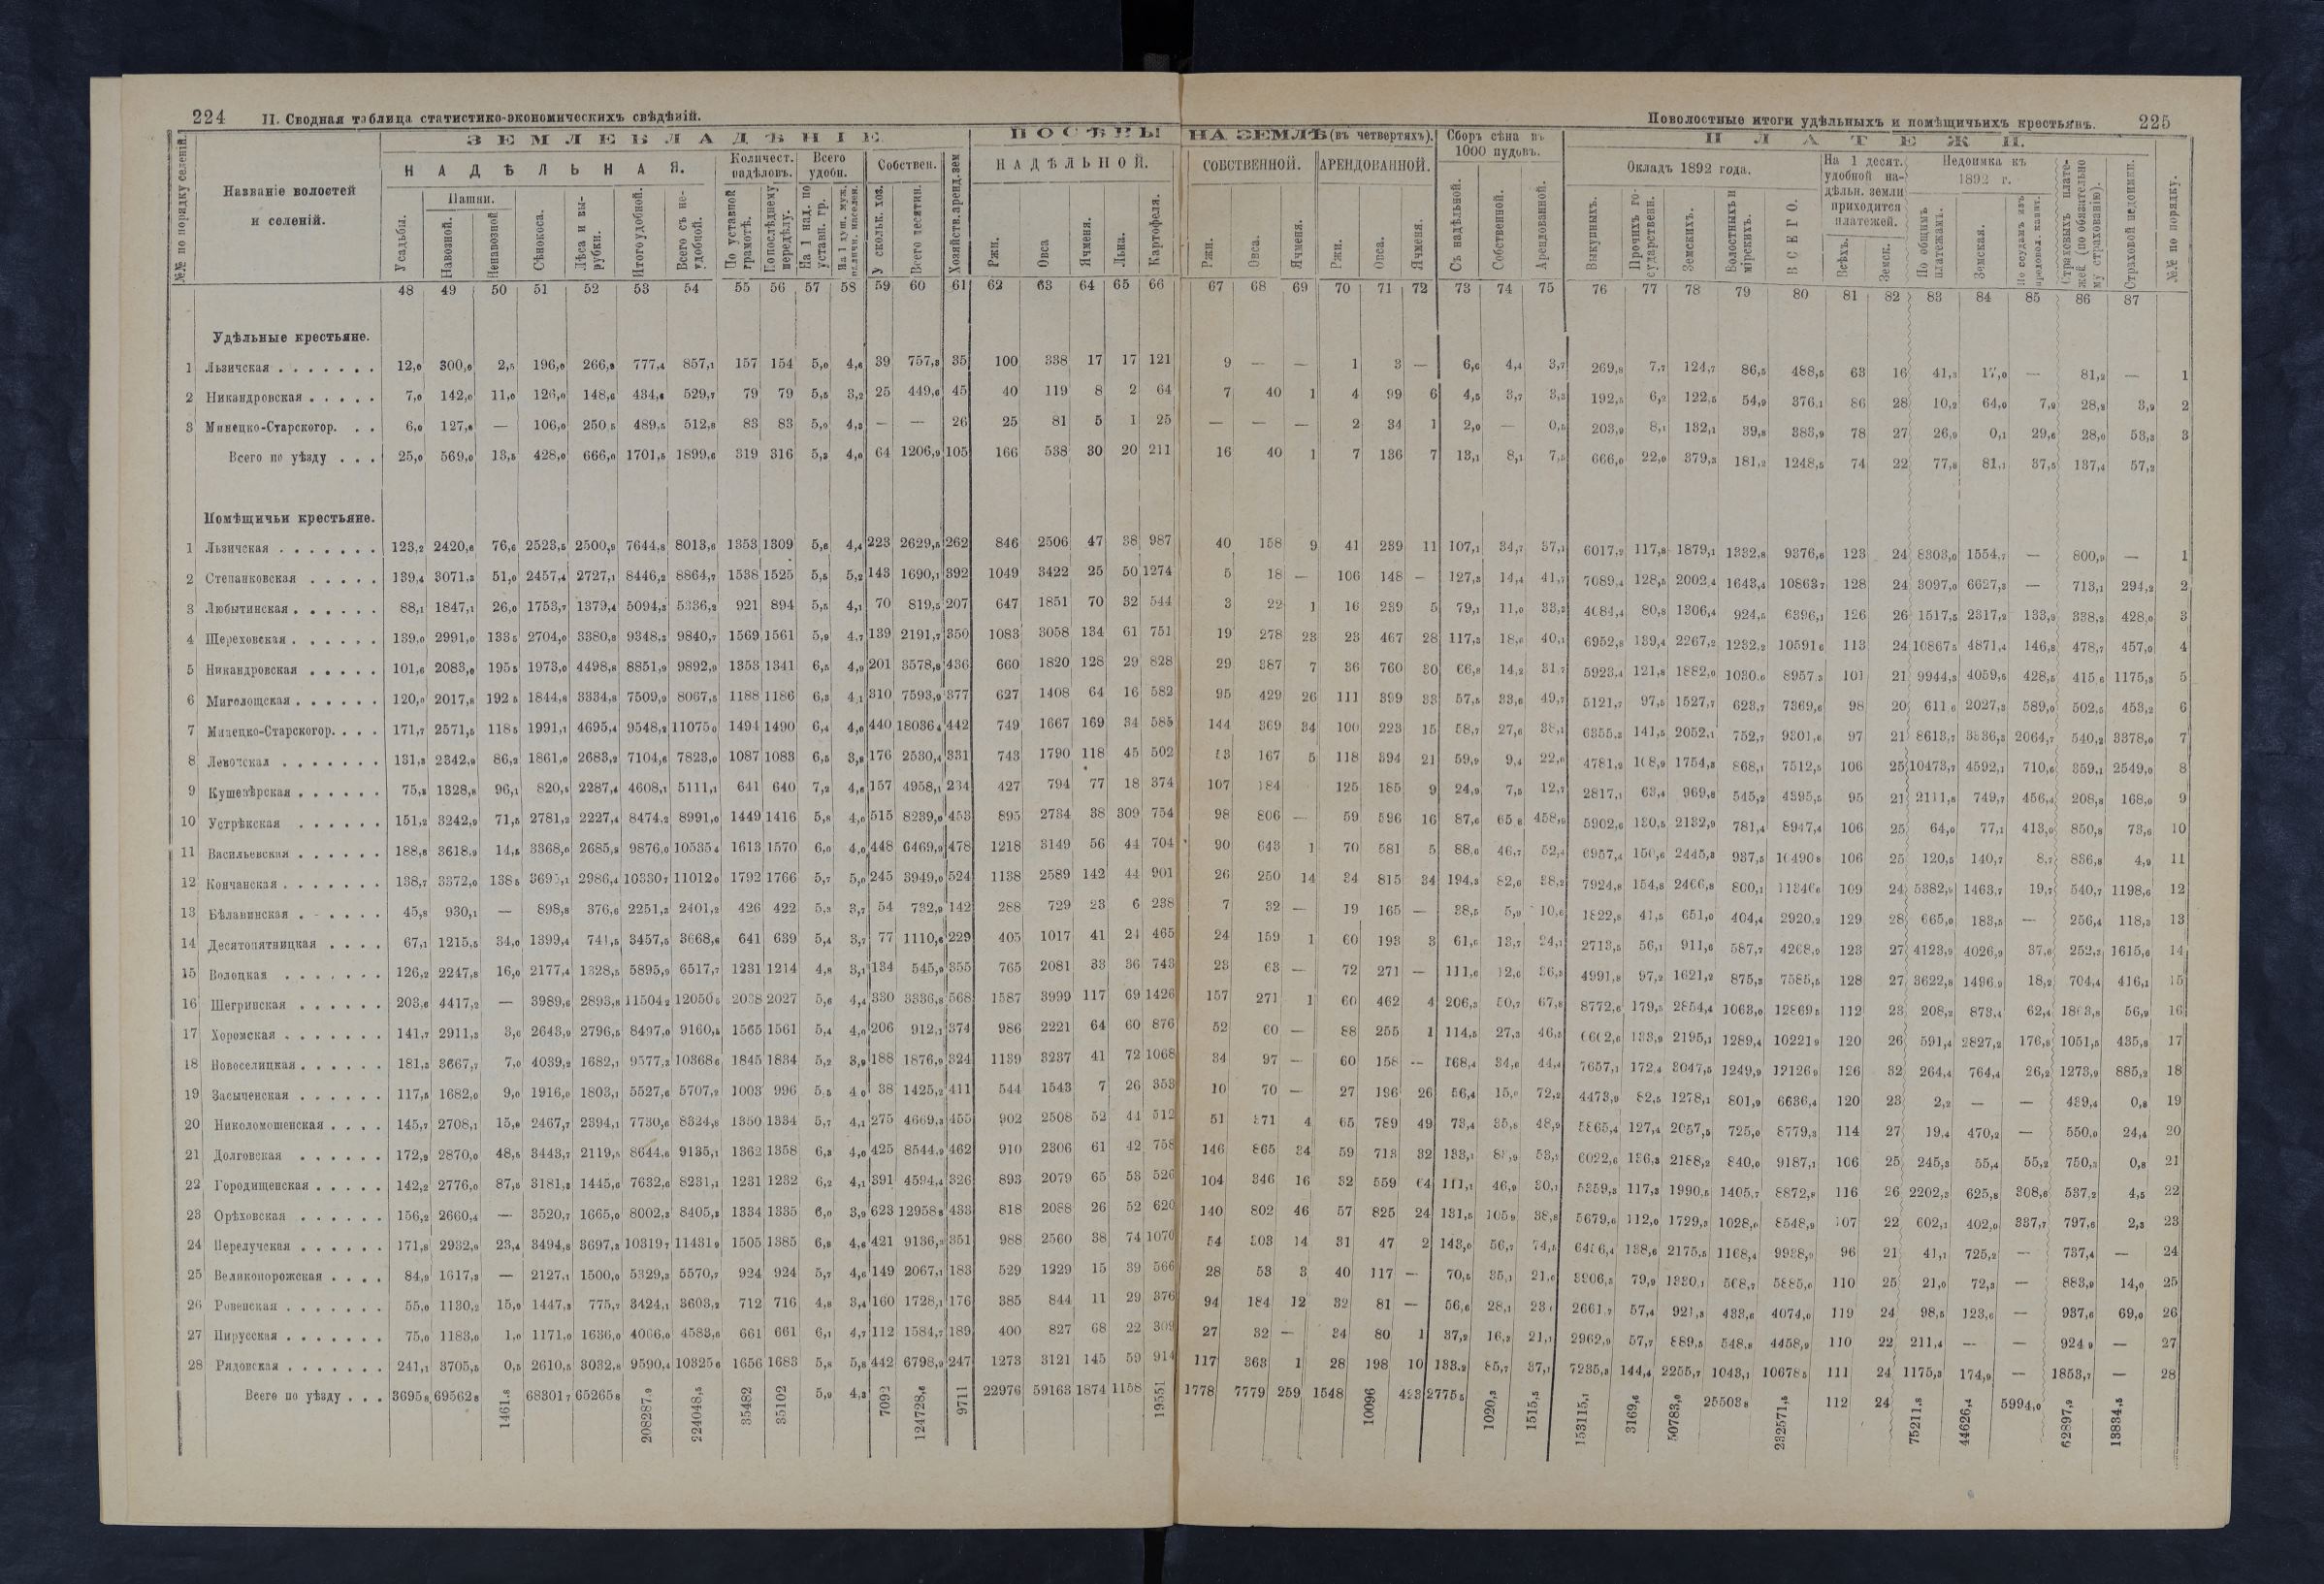 224 II. Сводная таблица статистико-экономическихъ свѣдѣній.
Поволостные итоги удѣльныхъ и помѣщичьихъ крестьянъ. 225
№№ по порядку селеній.
Названіе волостей и селеній.
ЗЕМЛЕВЛАДѢНІЕ.
НАДѢЛЬНАЯ.
Усадьбы.
Пашни.
Навозной.
Ненавозной
Сѣнокоса.
Лѣса и вырубки.
Итого удобной.
Всего съ неудобной.
Количест. надѣловъ.
По уставной грамотѣ.
По послѣднему передѣлу.
Всего удобн.
На 1 над. по уставн. гр.
Собствен.
У скольк. хоз.
Всего десятин.
Хозяйств. аренд. зем
ПОСѢВЫ НА ЗЕМЛѢ (въ четвертяхъ).
НАДѢЛЬНОЙ.
Ржи.
Овса
Ячменя.
Льна.
Картофеля.
СОБСТВЕННОЙ.
Ржи.
Овса.
Ячменя.
АРЕНДОВАННОЙ.
Ржи.
Овса.
Ячменя.
Сборъ сѣна въ 1000 пудовъ.
Съ надѣльной.
Собственной.
Арендованной.
ПЛАТЕЖИ.
Окладъ 1892 года.
Выкупныхъ.
Прочихъ государственн.
Земскихъ.
Волостныхъ и мірскихъ.
ВСЕГО.
На 1 десят. удобной надѣльн. земли приходится платежей.
Всѣхъ.
Земск.
Недоимка къ 1892 г.
По общимъ платежамъ.
Земская.
Страховыхъ платежей (по обязательному страхованію).
Страховой недоимки.
№№ по порядку.
48 49 50 51 52 53 54 55 56 57 58 59 60 61 62 63 64 65 66 67 68 69 70 71 72 73 74 75 76 77 78 79 80 81 82 83 84 85 86 87
Удѣльные крестьяне.
1 Льзичская . . . 12,0 300,0 2,5 196,0 266,9 777,4 857,1 157 154 5,0 4,6 39 757,3 35 100 338 17 17 121 9 — — 1 3 — 6,6 4,4 3,7 269,8 7,7 124,7 86,5 488,5 63 16 41,3 17,0 — 81,2 — 1
2 Никандровская . . . 7,0 142,0 11,0 126,0 148,6 434,6 529,7 79 79 5,5 3,2 25 449,6 45 40 119 8 2 64 7 40 1 4 99 6 4,5 3,7 3,3 192,5 6,2 122,5 54,9 376,1 86 28 10,2 64,0 7,9 28,2 3,9 2
3 Минецко-Старскогор. . . 6,0 127,6 — 106,0 250,5 489,5 512,8 83 83 5,9 4,3 — — 26 25 81 5 1 25 — — — 2 34 1 2,0 — 0,5 203,9 8,1 132,1 39,8 383,9 78 27 26,9 0,1 29,6 28,0 53,3 3
Всего по уѣзду . . . 25,0 569,0 13,5 428,0 666,0 1701,5 1899,6 319 316 5,3 4,0 64 1206,9 105 166 538 30 20 211 16 40 1 7 136 7 13,1 8,1 7,5 666,0 22,0 379,3 181,2 1248,5 74 22 77,8 81,1 37,5 137,4 57,2
Помѣщичьи крестьяне.
1 Льзичская . . . 123,2 2420,6 76,6 2523,5 2500,9 7644,8 8013,6 1353 1309 5,6 4,4 223 2629,5 262 846 2506 47 38 987 40 158 9 41 239 11 107,1 34,7 37,1 6017,2 117,8 1879,1 1332,8 9376,6 123 24 8303,0 1554,7 — 800,9 — 1
2 Степанковская . . . 139,4 3071,3 51,0 2457,4 2727,1 8446,2 8864,7 1538 1525 5,5 5,2 143 1690,1 392 1049 3422 25 50 1274 5 18 — 106 148 — 127,3 14,4 41,7 7089,4 128,5 2002,4 1643,4 10863,7 128 24 3097,0 6627,3 — 713,1 294,2 2
3 Любытинская . . . 88,1 1847,1 26,0 1753,7 1379,4 5094,3 5336,3 921 894 5,5 4,1 70 819,5 207 647 1851 70 32 544 3 22 1 16 239 5 79,1 11,0 33,3 4084,4 80,8 1306,4 924,5 6396,1 126 26 1517,5 2317,2 133,9 338,2 428,0 3
4 Шереховская . . . 139,0 2991,0 133,5 2704,0 3380,8 9348,3 9840,7 1569 1561 5,9 4,7 139 2191,7 350 1083 3058 134 61 751 19 278 23 23 467 28 117,3 18,6 40,1 6952,8 139,4 2267,2 1232,2 10591,6 113 24 10867,5 4871,4 146,8 478,7 457,0 4
5 Никандровская . . . 101,6 2083,0 195,5 1973,0 4498,8 8851,9 9892,9 1353 1341 6,5 4,9 201 3578,8 436 660 1820 128 29 828 29 387 7 36 760 30 66,8 14,2 31,7 5923,4 121,8 1882,0 1030,0 8957,3 101 21 9944,3 4059,6 428,5 415,6 1175,3 5
6 Миголощская . . . 120,0 2017,8 192,5 1844,8 3334,8 7509,9 8067,5 1188 1186 6,3 4,1 310 7593,9 377 627 1408 64 16 582 95 429 26 111 399 33 57,5 33,6 49,7 5121,7 97,5 1527,7 623,7 7369,6 98 20 611,6 2027,3 589,0 502,5 453,2 6
7 Минецко-Старскогор. . . . 171,7 2571,5 118,5 1991,1 4695,4 9548,2 11075,0 1494 1490 6,4 4,0 440 18036,4 442 749 1667 169 34 585 144 369 34 100 223 15 58,7 27,6 38,1 6355,3 141,5 2052,1 752,7 9301,6 97 21 8613,7 3836,3 2064,7 540,2 3378,0 7
8 Левочская . . . 131,3 2342,9 86,2 1861,0 2683,2 7104,6 7823,0 1087 1083 6,5 3,8 176 2530,4 331 743 1790 118 45 502 53 167 5 118 394 21 59,9 9,4 22,0 4781,2 108,9 1754,3 868,1 7512,5 106 25 10473,7 4592,1 710,6 359,1 2549,0 8
9 Кушевѣрская . . . 75,3 1328,8 96,1 820,5 2287,4 4608,1 5111,1 641 640 7,2 4,6 157 4958,1 234 427 794 77 18 374 107 184 125 185 9 24,9 7,5 12,7 2817,1 63,4 969,8 545,2 4395,5 95 21 2111,8 749,7 456,4 208,8 168,0 9
10 Устрѣкская . . . 151,2 3242,9 71,5 2781,2 2227,4 8474,2 8991,0 1449 1416 5,8 4,0 515 8239,0 453 895 2734 38 309 754 98 806 — 59 596 16 87,6 65,6 458,9 5902,6 130,5 2132,9 781,4 8947,4 106 25 64,0 77,1 413,0 850,8 73,6 10
11 Васильевская . . . 188,8 3618,9 14,5 3368,0 2685,8 9876,0 10535,4 1613 1570 6,0 4,0 448 6469,9 478 1218 3149 56 44 704 90 643 1 70 581 5 88,6 46,7 52,4 6957,4 150,6 2445,3 937,5 10490,8 106 25 120,5 140,7 8,7 836,8 4,9 11
12 Кончанская . . . 138,7 3372,0 138,5 3695,1 2986,4 10330,7 11012,0 1792 1766 5,7 5,0 245 3949,0 524 1138 2589 142 44 901 26 250 14 34 815 34 194,3 82,6 38,2 7924,8 154,8 2466,8 800,1 11346,6 109 24 5382,9 1463,7 19,7 540,7 1198,6 12
13 Бѣлавинская . . . 45,8 930,1 — 898,8 376,6 2251,3 2401,2 426 422 5,3 3,7 54 732,9 142 288 729 23 6 238 7 32 — 19 165 — 38,5 5,9 10,6 1822,8 41,5 651,0 404,4 2920,2 129 28 665,0 183,5 — 256,4 118,3 13
14 Десятопятницкая . . . 67,1 1215,5 34,0 1399,4 741,5 3457,5 3668,6 641 639 5,4 3,7 77 1110,6 229 405 1017 41 24 465 24 159 1 60 193 3 61,6 13,7 24,1 2713,5 56,1 911,6 587,7 4268,9 123 27 4123,9 4026,9 37,6 252,2 1615,6 14
15 Волоцкая . . . 126,2 2247,8 16,0 2177,4 1328,5 5895,9 6517,7 1231 1214 4,8 3,1 134 545,9 355 765 2081 33 36 743 23 63 — 72 271 — 111,6 12,0 36,3 4991,8 97,2 1621,2 875,3 7585,5 128 27 3622,8 1496,9 18,2 704,4 416,1 15
16 Шегринская . . . 203,6 4417,2 — 3989,6 2893,8 11504,2 12050,5 2038 2027 5,6 4,4 330 3336,8 568 1587 3999 117 69 1426 157 271 1 60 462 4 206,3 50,7 67,8 8772,6 179,5 2854,4 1063,0 12869,5 112 23 208,2 873,4 62,4 1803,8 56,9 16
17 Хоромская . . . 141,7 2911,3 3,6 2643,9 2796,5 8497,0 9160,5 1565 1561 5,4 4,0 206 912,1 374 986 2221 64 60 876 52 60 — 88 255 1 114,5 27,3 46,5 6602,6 133,9 2195,1 1289,4 10221,9 120 26 591,4 2827,2 176,8 1051,5 435,8 17
18 Новоселицкая . . . 181,3 3667,7 7,0 4039,2 1682,1 9577,3 10368,6 1845 1834 5,2 3,9 188 1876,9 324 1139 3237 41 72 1068 34 97 — 60 158 — 168,4 34,6 44,4 7657,1 172,4 3047,5 1249,9 12126,9 126 32 264,4 764,4 26,2 1273,9 885,2 18
19 Засыченская . . . 117,5 1682,0 9,0 1916,0 1803,1 5527,6 5707,2 1003 996 5,5 4,0 38 1425,2 411 544 1543 7 26 353 10 70 — 27 196 26 56,4 15,0 72,2 4473,9 82,5 1278,1 801,9 6636,4 120 23 2,2 — — 439,4 0,8 19
20 Николомошенская . . . 145,7 2708,1 15,0 2467,7 2394,1 7730,6 8324,8 1350 1334 5,7 4,1 275 4669,3 455 902 2508 52 44 512 51 371 4 65 789 49 73,4 35,8 48,9 5865,4 127,4 2057,5 725,0 8779,3 114 27 19,4 470,2 — 550,0 24,4 20
21 Долговская . . . 172,9 2870,0 48,5 3443,7 2119,5 8644,6 9135,1 1362 1358 6,3 4,0 425 8544,9 462 910 2306 61 42 758 146 865 34 59 713 32 133,1 53,5 6022,6 136,3 2188,2 840,0 9187,1 106 25 245,3 55,4 55,2 750,3 0,8 21
22 Городищенская . . . 142,2 2776,0 87,5 3181,3 1445,6 7632,6 8231,1 1231 1232 6,2 4,1 391 4594,4 326 893 2079 65 53 526 104 346 16 32 559 64 111,1 46,9 30,1 5359,3 117,3 1990,5 1405,7 8872,8 116 26 2202,3 625,8 308,6 537,2 4,5 22
23 Орѣховская . . . 156,2 2660,4 — 3520,7 1665,0 8002,3 8405,3 1334 1335 6,0 3,9 623 12958,8 433 818 2088 26 52 620 140 802 46 57 825 24 131,5 105,9 38,8 5679,6 112,0 1729,3 1028,0 8548,9 107 22 602,1 402,0 337,7 797,6 2,3 23
24 Перелучская . . . 171,8 2932,0 23,4 3494,8 3697,3 10319,7 11431,9 1505 1385 6,8 4,6 421 9136,3 351 988 2560 38 74 1070 54 303 14 31 47 2 143,0 56,7 74,5 6456,4 138,6 2175,5 1168,4 9938,9 96 21 41,1 725,2 — 737,4 — 24
25 Великопорожская . . . 84,9 1617,3 — 2127,1 1500,0 5329,3 5570,7 924 924 5,7 4,6 149 2067,1 183 529 1229 15 39 566 28 53 3 40 117 — 70,5 35,1 21,0 3906,5 79,9 1330,1 568,7 5885,0 110 25 21,0 72,3 — 883,9 14,0 25
26 Ровенская . . . 55,0 1130,2 15,0 1447,3 775,7 3424,1 3603,2 712 716 4,8 3,4 160 1728,1 176 385 844 11 29 376 94 184 12 32 81 — 56,6 28,1 23,6 2661,7 57,4 921,3 433,6 4074,0 119 24 98,5 123,6 — 937,6 69,0 26
27 Пирусская . . . 75,0 1183,0 1,0 1171,0 1636,0 4066,0 4583,6 661 661 6,1 4,7 112 1584,7 189 400 827 68 22 309 27 32 — 34 80 1 37,2 16,3 21,1 2962,9 57,7 889,5 548,8 4458,9 110 22 211,4 — — 924,9 — 27
28 Рядовская . . . 241,1 3705,5 0,5 2610,5 3032,8 9590,4 10325,6 1656 1683 5,8 5,8 442 6798,9 247 1273 3121 145 59 914 117 363 1 28 198 10 133,2 85,7 37,1 7235,3 144,4 2255,7 1043,1 10678,5 111 24 1175,3 174,9 — 1853,7 — 28
Всего по уѣзду . . . 3695,8 69562,8 1461,8 68301,7 65265,8 208287,9 224048,5 35482 35102 5,9 4,3 7092 124728,6 9711 22976 59163 1874 1158 19551 1778 7779 259 1548 10096 423 2775,5 1020,3 1515,5 153115,1 3169,6 50783,0 25503,8 232571,5 112 24 75211,8 44626,4 5994,0 62897,9 13834,5